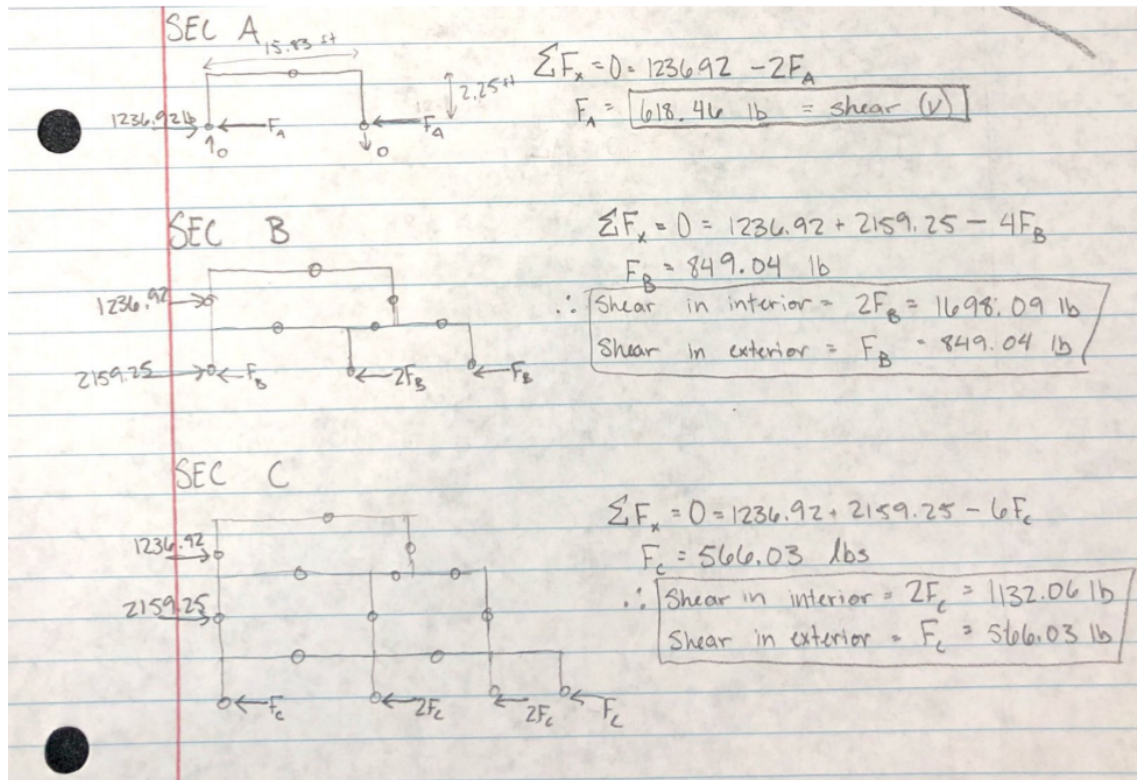 SEC A
15.83 ft
2.25 ft
1236.92 lb
F_A
F_A
0
0
ΣF_x = 0 = 1236.92 - 2F_A
F_A = 618.46 lb = shear (V)
SEC B
1236.92
2159.25
F_B
2F_B
F_B
ΣF_x = 0 = 1236.92 + 2159.25 - 4F_B
F_B = 849.04 lb
∴ Shear in interior = 2F_B = 1698.09 lb
Shear in exterior = F_B = 849.04 lb
SEC C
1236.92
2159.25
F_c
2F_c
2F_c
F_c
ΣF_x = 0 = 1236.92 + 2159.25 - 6F_c
F_c = 566.03 lbs
∴ Shear in interior = 2F_c = 1132.06 lb
Shear in exterior = F_c = 566.03 lb